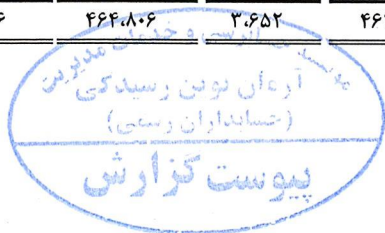 ۴۶۴،۸۰۶ ۳،۶۵۲
موسسه حسابرسی و خدمات مدیریت
آرمان نوین رسیدگی
(حسابداران رسمی)
پیوست گزارش